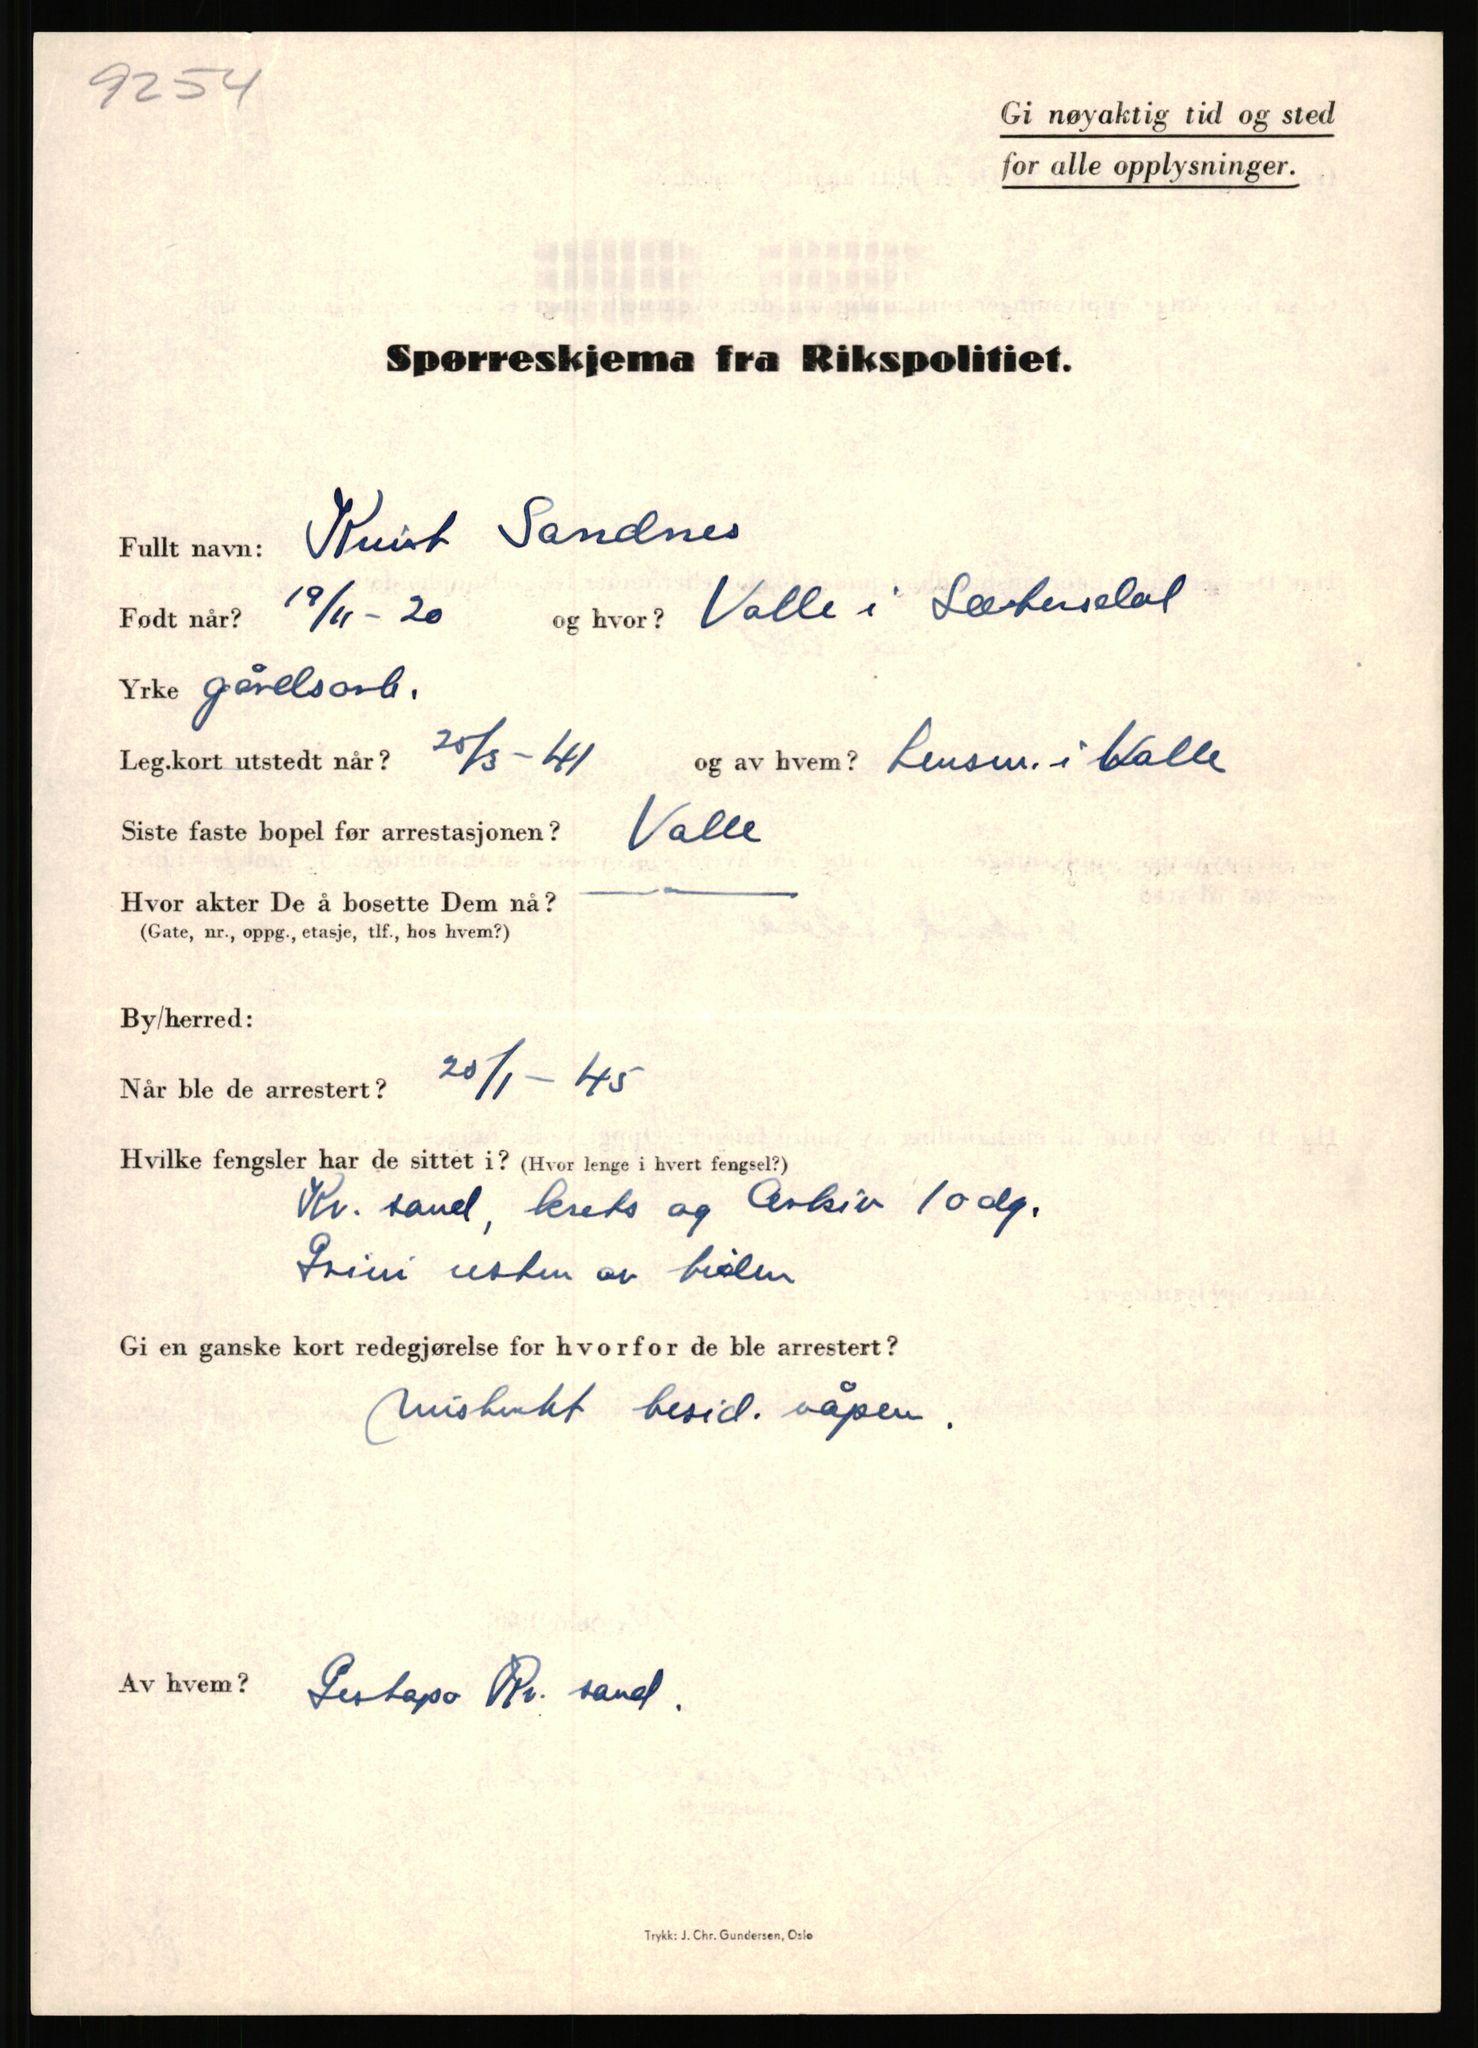 9254
Gi nøyaktig tid og sted
for alle opplysninger.
Spørreskjema fra Rikspolitiet.
Fullt navn: Knut Sandnes
Født når? 19/11-20 og hvor? Valle i Sætersdal
Yrke gårdsarb.
Leg.kort utstedt når? 25/3-41 og av hvem? Lensm. i Valle
Siste faste bopel før arrestasjonen? Valle
Hvor akter De å bosette Dem nå? — —
(Gate, nr., oppg., etasje, tlf., hos hvem?)
By/herred:
Når ble de arrestert? 20/1-45
Hvilke fengsler har de sittet i? (Hvor lenge i hvert fengsel?)
Kr. sand, krets og Arkiv 10 dg.
Grini resten av tiden
Gi en ganske kort redegjørelse for hvorfor de ble arrestert?
Mistenkt besid. våpen.
Av hvem? Gestapo Kr. sand.
Trykk: J. Chr. Gundersen, Oslo